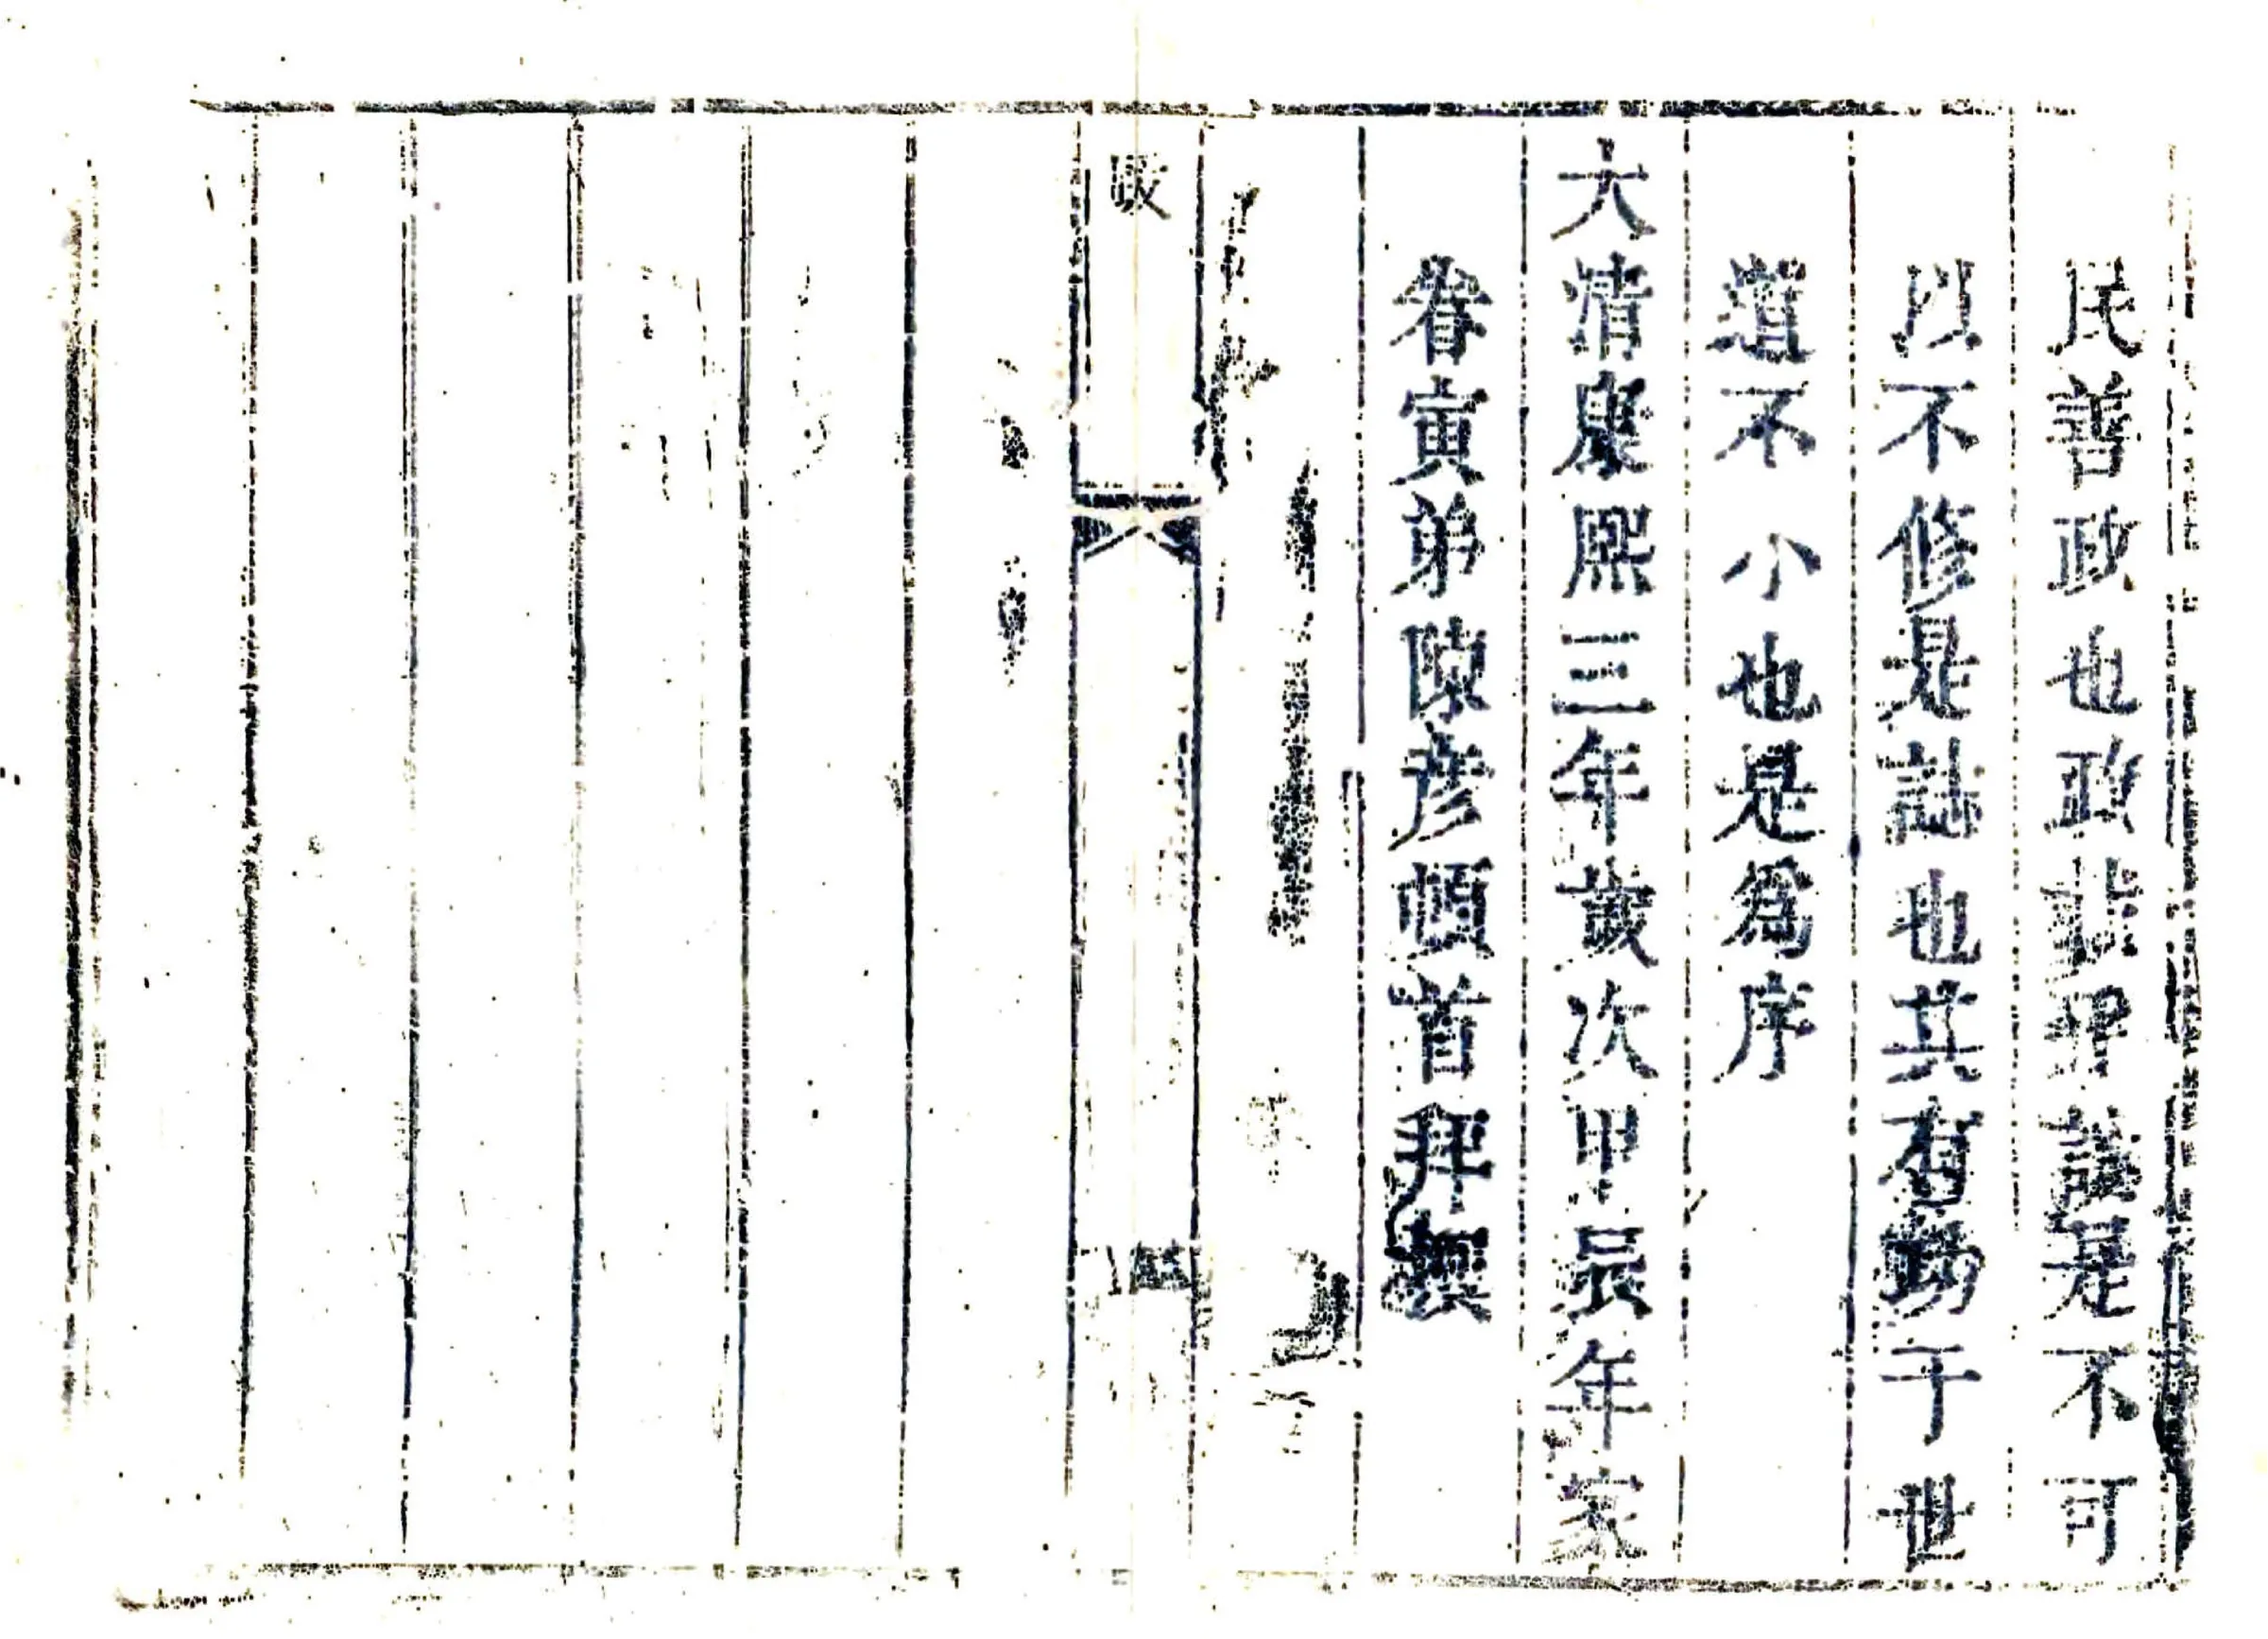 民善政也政是不可
以不修是誌也其有于世
道不小也是爲序
大清康熙三年歲次甲辰年家
眷寅弟陳彥頓首拜撰